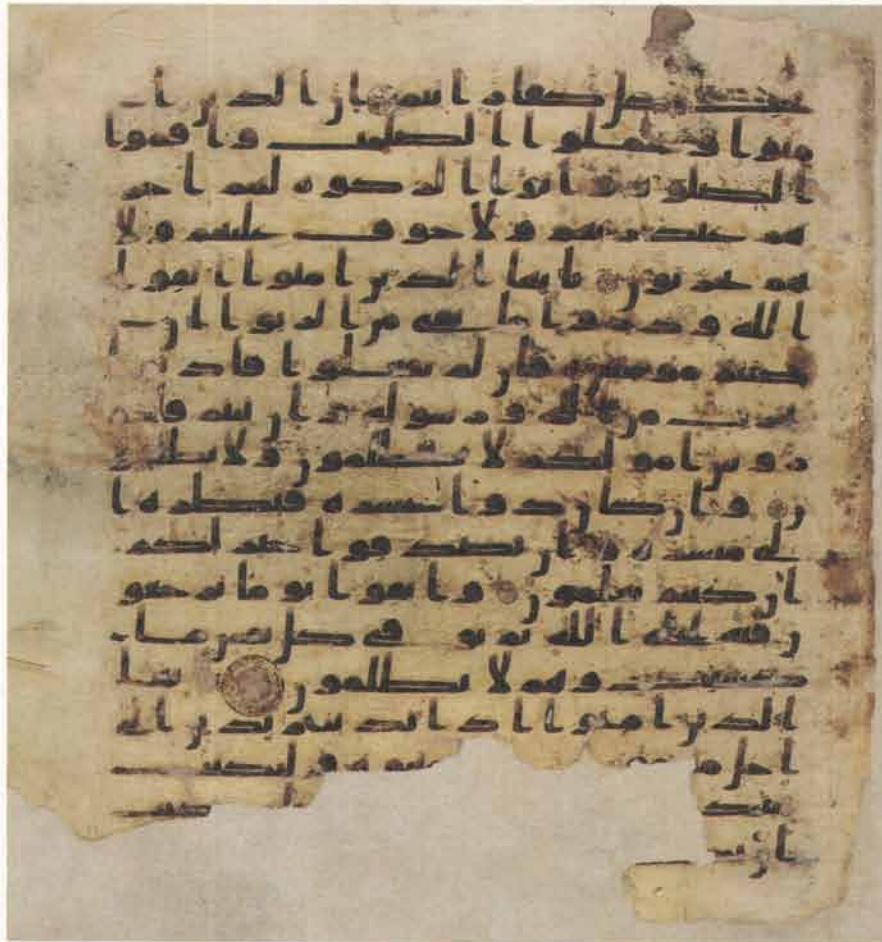 يحب كل كفار اثيم ان الذين ا
منوا وعملوا الصلحت واقموا
الصلوه واتوا الزكوه لهم اجر
هم عند ربهم ولا خوف عليهم ولا
هم يحزنون يايها الذين امنوا اتقوا
الله وذروا ما بقى من الربوا ان
كنتم مومنين فان لم تفعلوا فاذنوا
بحرب من الله ورسوله وان تبتم فلكم
روس امولكم لا تظلمون ولا تظلمو
ن وان كان ذو عسره فنظره ا
لى ميسره وان تصدقوا خير لكم
ان كنتم تعلمون واتقوا يوما ترجعو
ن فيه الى الله ثم توفى كل نفس ما
كسبت وهم لا يظلمون يايها
الذين امنوا اذا تداينتم بدين الى
اجل فاكتبوه وليكتب
بينكم
ان